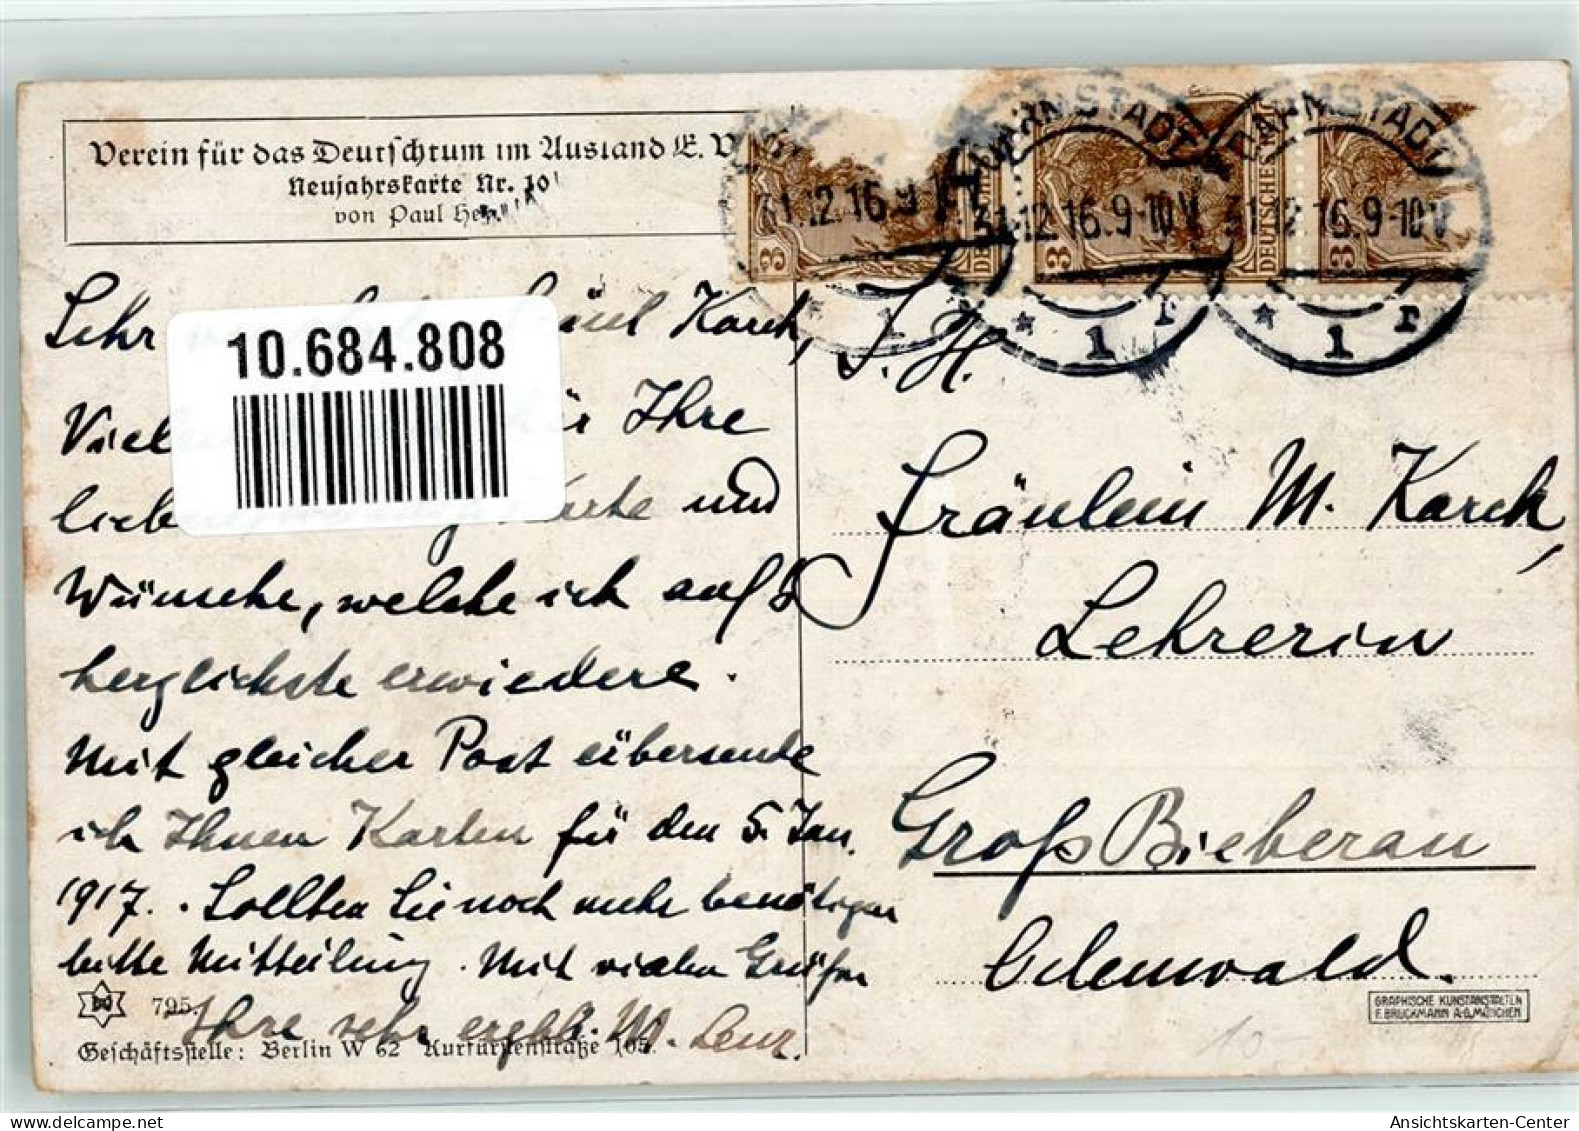 Verein für das Deutschtum im Ausland E. V.
Neujahrskarte Nr. 10
von Paul
DARMSTADT
31.12.16.9-10V
* 1 r
DARMSTADT
31.12.16.9-10V
* 1 r
3 DEUTSCHES REICH
3 DEUTSCHES REICH
3
10.684.808
Sehr Karch,
Ihre
Karte und
Wünsche, welche ich aufs
herzlichste erwiedere.
Mit gleicher Post übersende
ich Ihnen Karten für den 5. Jan.
1917. Sollten Sie noch mehr benötigen
bitte Mitteilung. Mit vielen Grüßen
Ihre sehr ergeb. W. Lenz.
S. H.
Fräulein M. Karch,
Lehrerin
Groß Bieberau
Odenwald.
795.
Geschäftsstelle: Berlin W 62 Kurfürstenstraße 105.
GRAPHISCHE KUNSTANSTALTEN
F. BRUCKMANN A-G. MÜNCHEN
10-
Ansichtskarten-Center